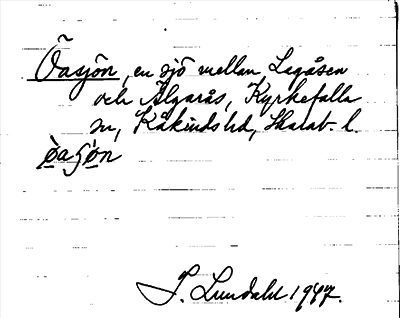 Öasjön, en sjö mellan Lagåsen
och Älgarås, Kyrkefalla
sn, Kåkinds hd, Skarab. l.
òaʃön
I. Lundahl 1947.